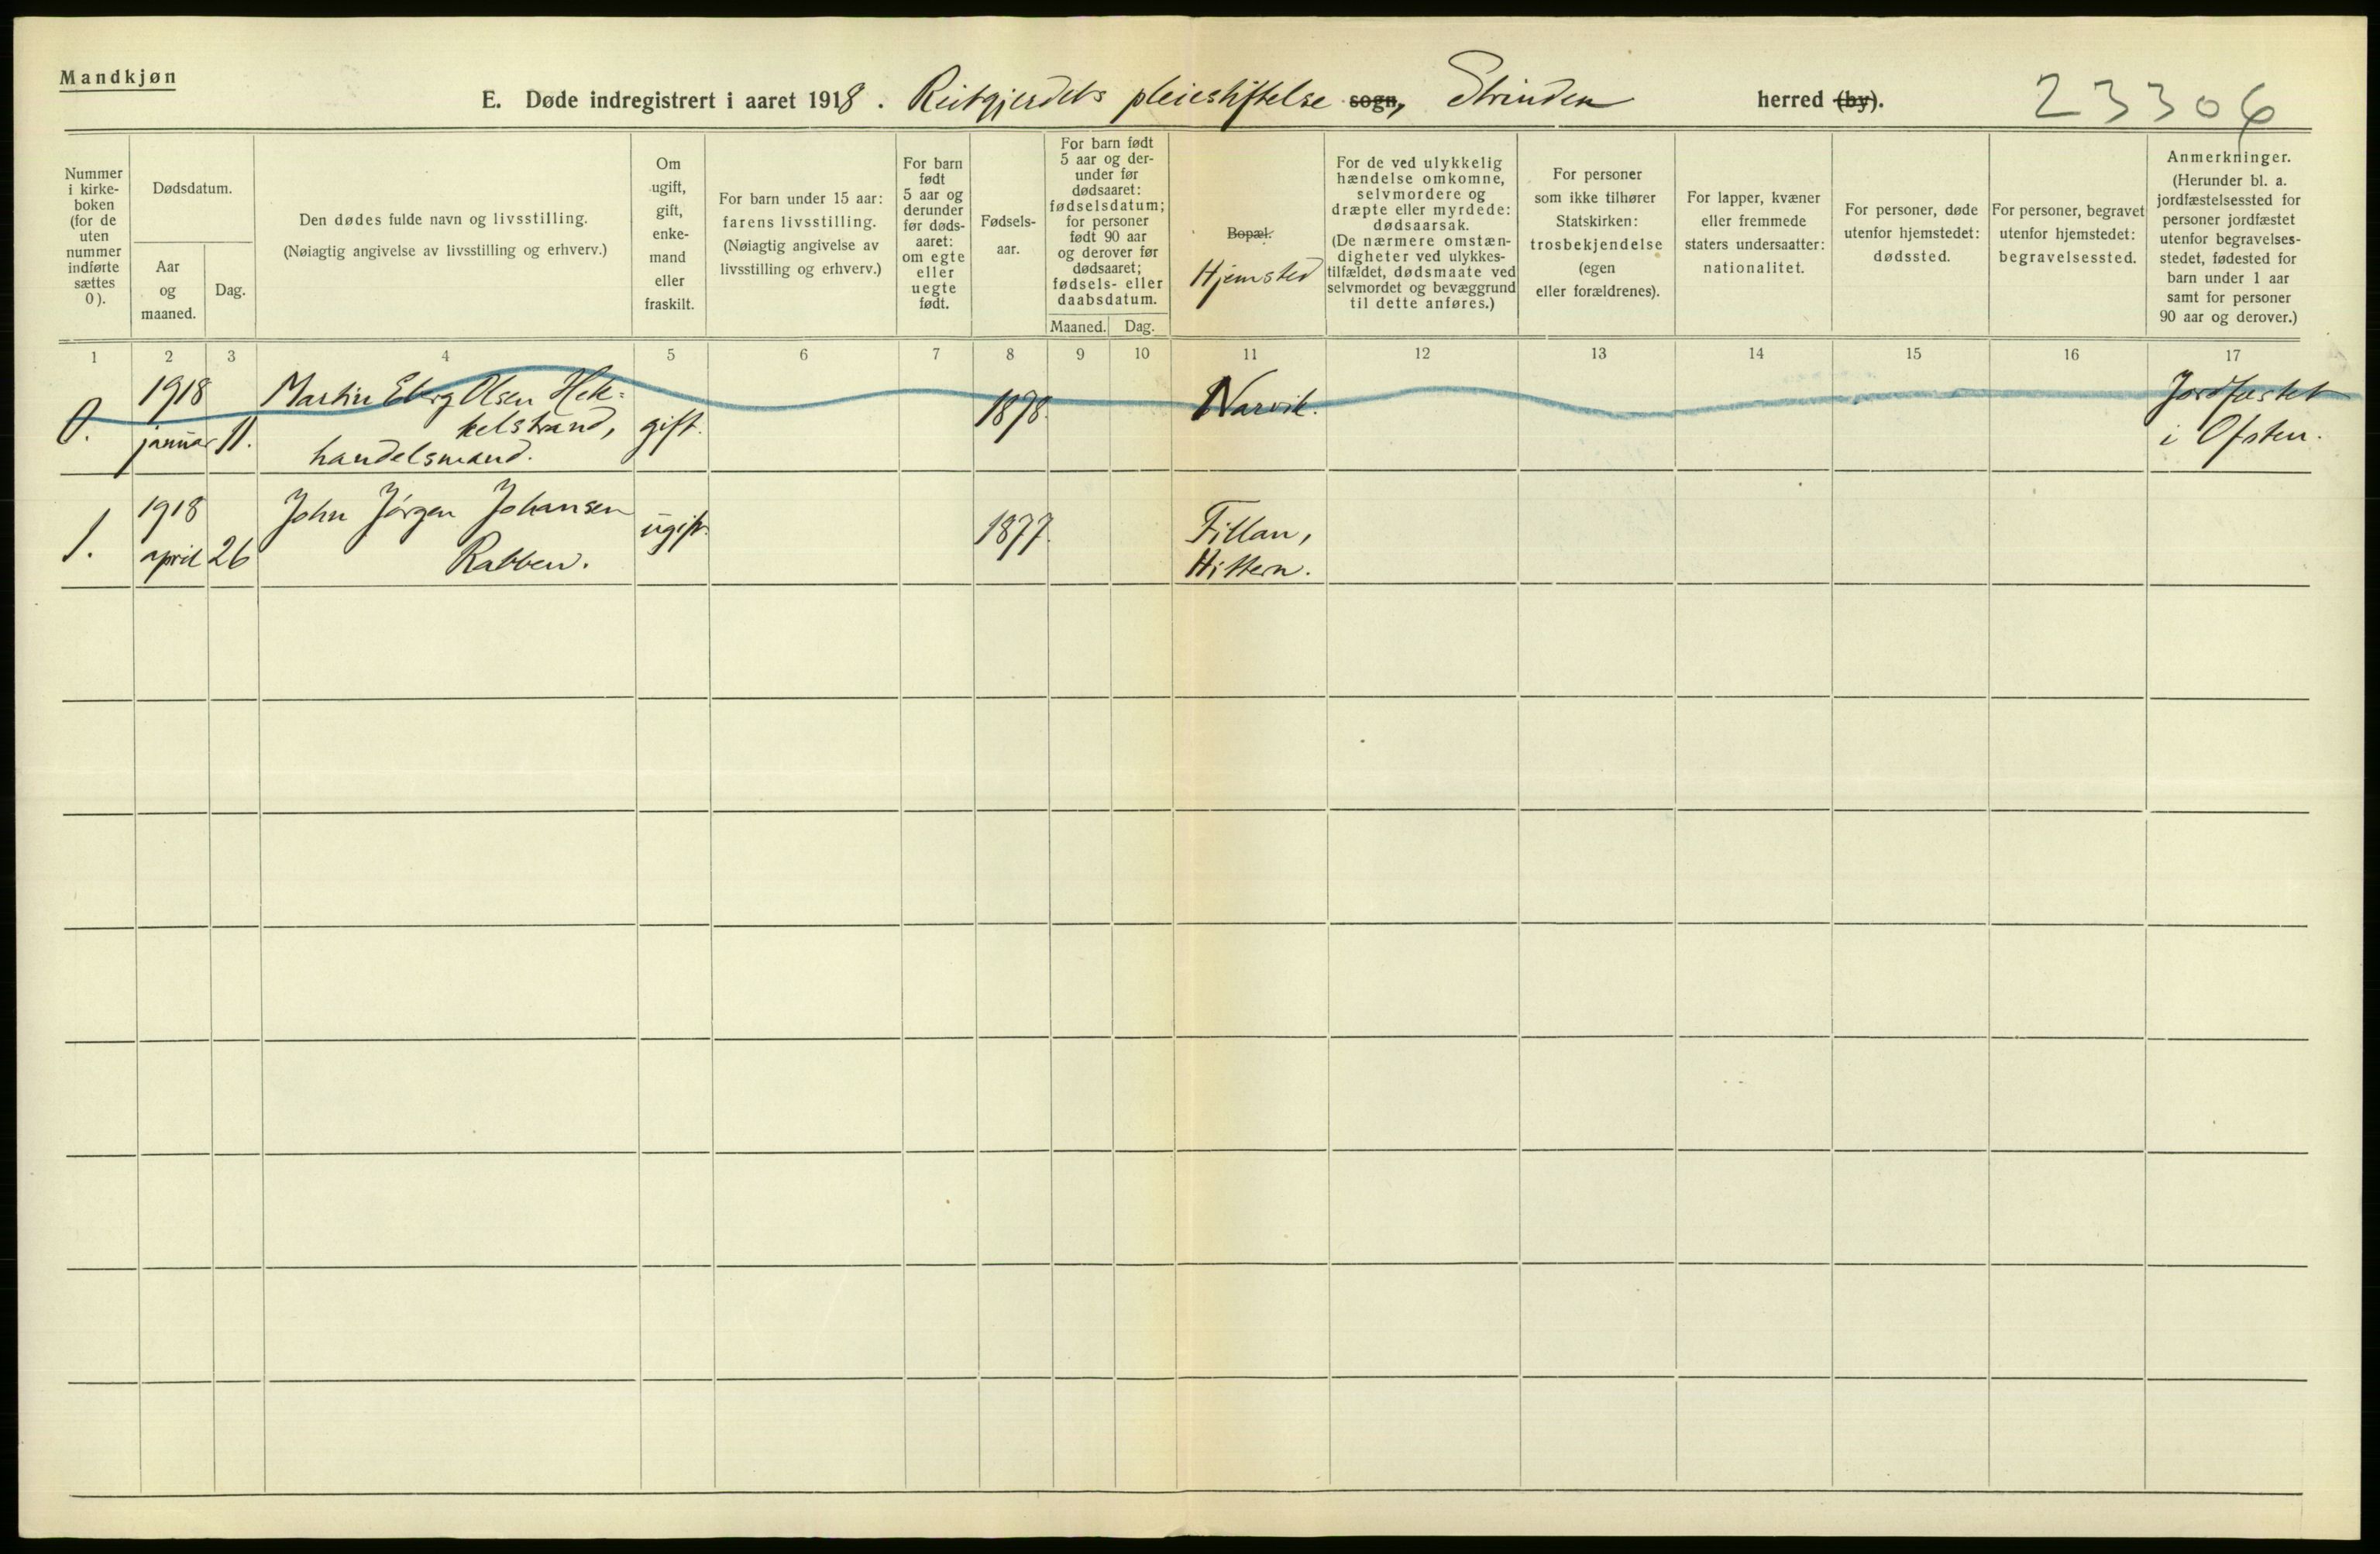 Mandkjøn
E. Døde indregistrert i aaret 1918. Reitgjerdets pleiestiftelse sogn, Strinden herred (by). 23306
Nummer
i kirke-
boken
(for de
uten
nummer
indførte
sættes
0).
Dødsdatum.
Aar
og
maaned.
Dag.
Den dødes fulde navn og livsstilling.
(Nøiagtig angivelse av livsstilling og erhverv.)
Om
ugift,
gift,
enke-
mand
eller
fraskilt.
For barn under 15 aar:
farens livsstilling.
(Nøiagtig angivelse av
livsstilling og erhverv.)
For barn
født
5 aar og
derunder
før døds-
aaret:
om egte
eller
uegte
født.
Fødsels-
aar.
For barn født
5 aar og der-
under før
dødsaaret:
fødselsdatum;
for personer
født 90 aar
og derover før
dødsaaret;
fødsels- eller
daabsdatum.
Maaned. Dag.
Bopæl.
Hjemsted
For de ved ulykkelig
hændelse omkomne,
selvmordere og
dræpte eller myrdede:
dødsaarsak.
(De nærmere omstæn-
digheter ved ulykkes-
tilfældet, dødsmaate ved
selvmordet og bevæggrund
til dette anføres.)
For personer
som ikke tilhører
Statskirken:
trosbekjendelse
(egen
eller forældrenes).
For lapper, kvæner
eller fremmede
staters undersaatter:
nationalitet.
For personer, døde
utenfor hjemstedet:
dødssted.
For personer, begravet
utenfor hjemstedet:
begravelsessted.
Anmerkninger.
(Herunder bl. a.
jordfæstelsessted for
personer jordfæstet
utenfor begravelses-
stedet, fødested for
barn under 1 aar
samt for personer
90 aar og derover.)
1 2 3 4 5 6 7 8 9 10 11 12 13 14 15 16 17
0.
1918
januar 11.
Martin Olsen Hek-
kelstrand,
handelsmand.
gift.
1878.
Narvik.
Jordfæstet
i Ofoten.
1.
1918
april 26
John Jørgen Johansen
Rabben.
ugift.
1877.
Fillan,
Hittern.